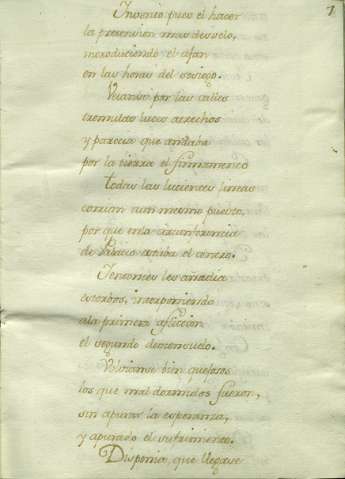 7
Inventó pues el hacer
la pretension mas desvelo,
introduciendo el afan
en las horas del sosiego.
Veianse por las calles
tremulas luces a trechos
y parecia que andaba
por la tierra el firmamento
todas las lucientes lineas
corrian a un mismo puesto,
por que en la circunferencia
de Palacio estaba el centro.
Entonces les añadia
estorbos, interponiendo
a la primera afliccion
el segundo desconsuelo.
Volvianse sin quejarse
los que mal dormidos fueron,
sin apurar la esperanza,
y apurado el sufrimiento.
Disponia, que llegase